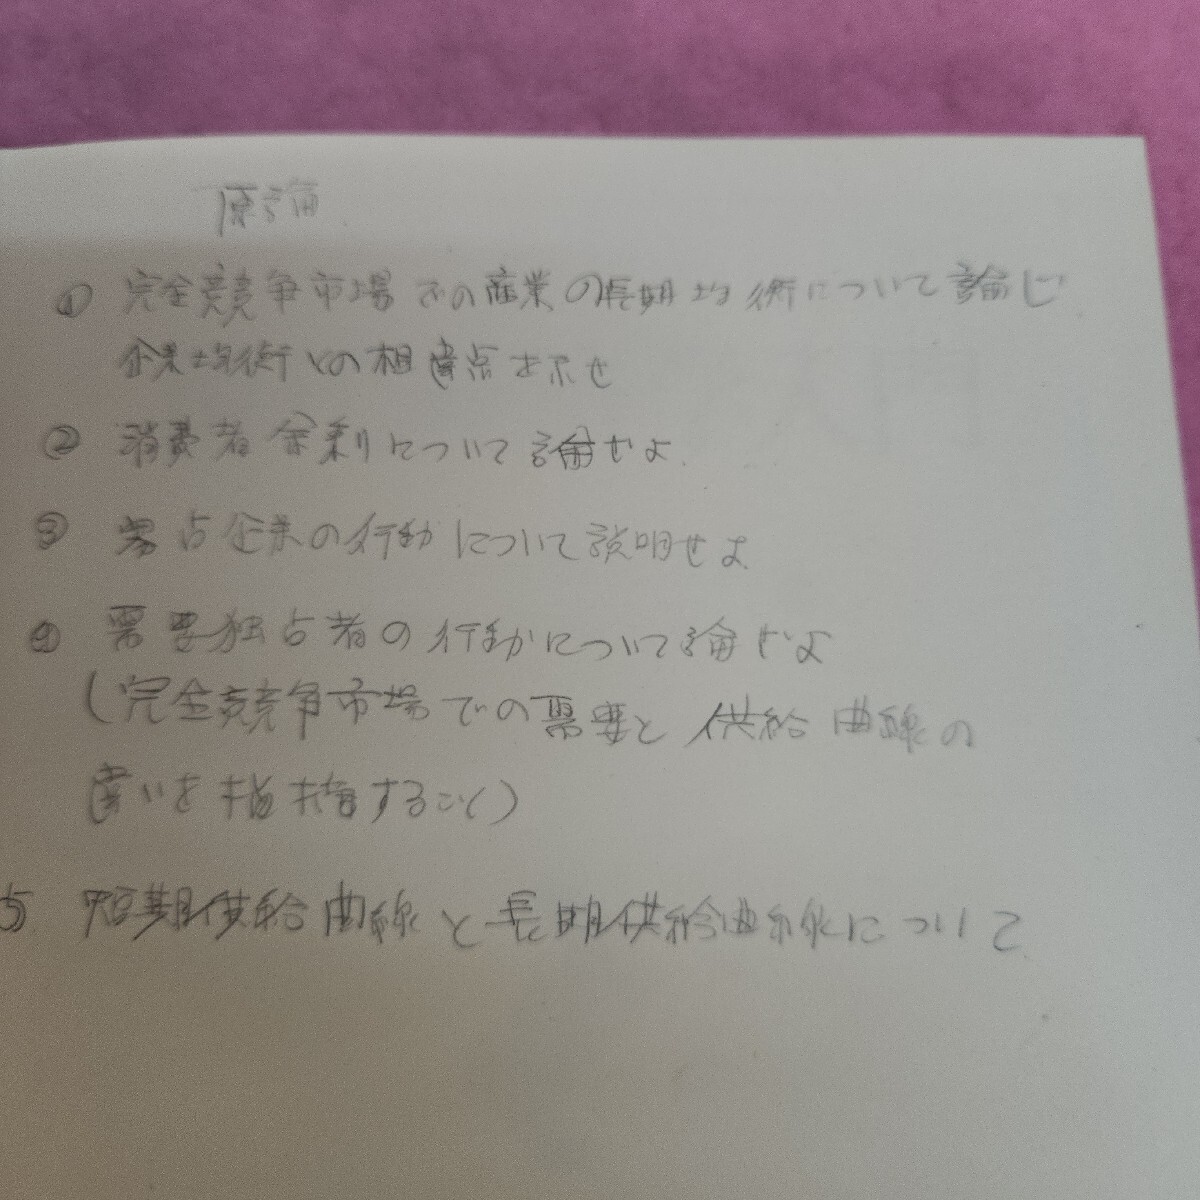 原論
① 完全競争市場での産業の長期均衡について論じ
企業均衡との相違点を示せ
② 消費者余剰について論ぜよ.
③ 占企業の行動について説明せよ
④ 需要独占者の行動について論ぜよ
(完全競争市場での需要と供給曲線の
違いを指摘すること)
5 短期供給曲線と長期供給曲線について